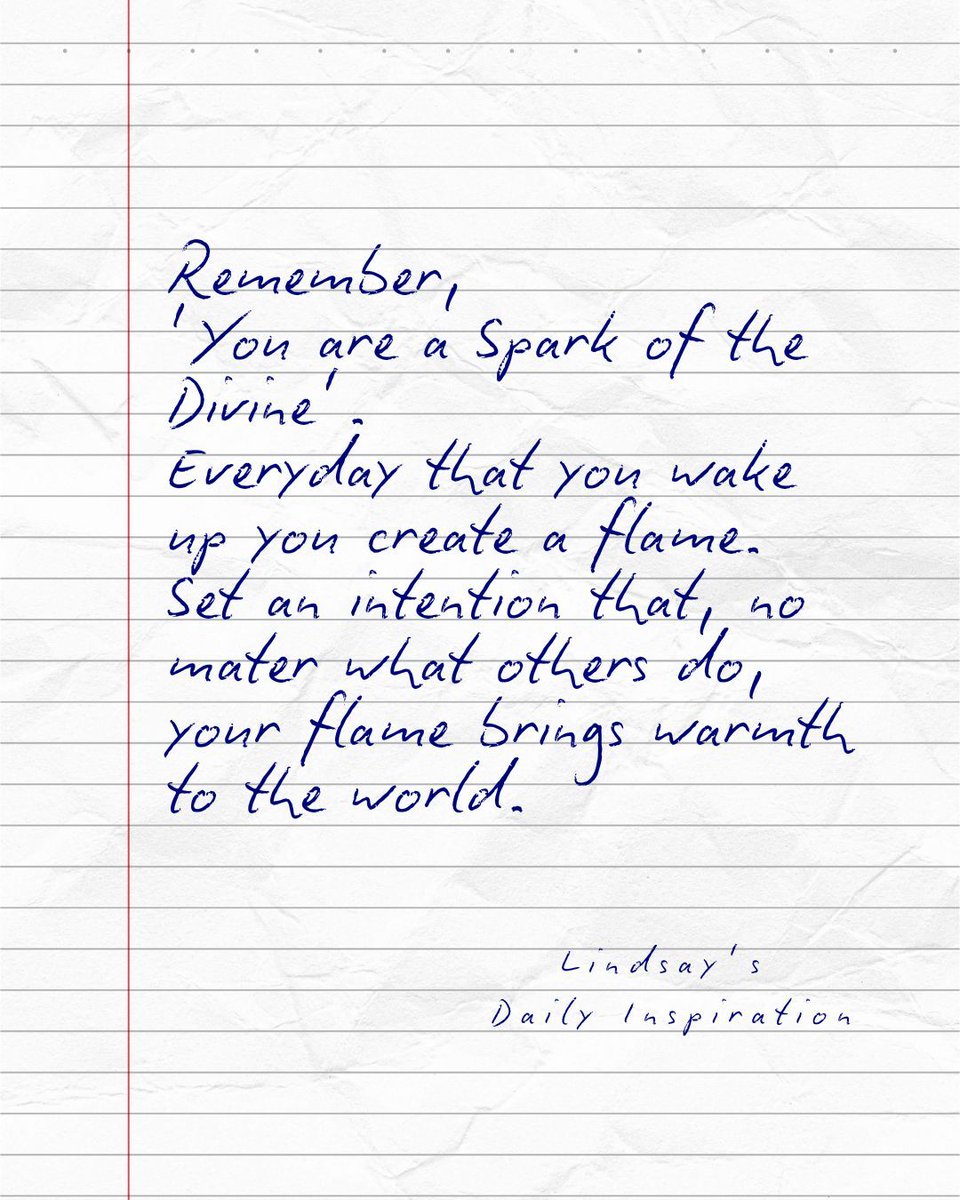 Remember,
'You are a Spark of the
Divine'.
Everyday that you wake
up you create a flame.
Set an intention that, no
mater what others do,
your flame brings warmth
to the world.
Lindsay's
Daily Inspiration